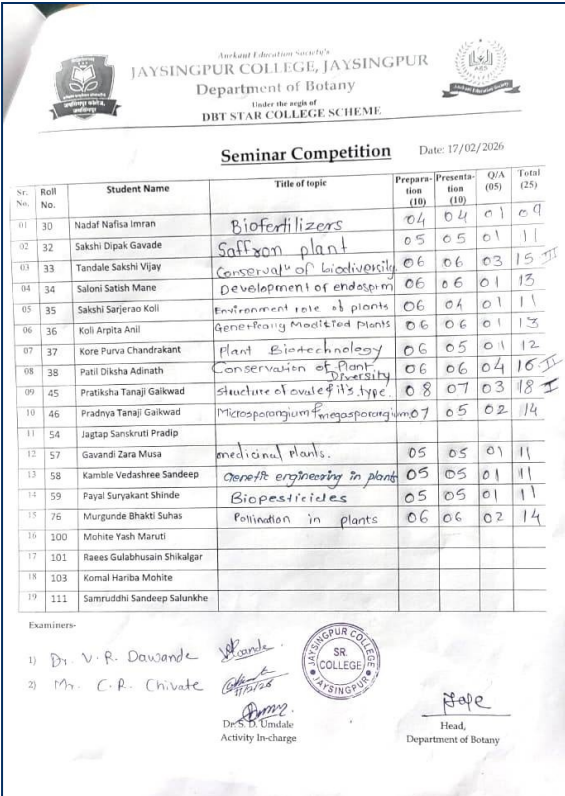 Anekant Education Society's
JAYSINGPUR COLLEGE, JAYSINGPUR
Department of Botany
Under the aegis of
DBT STAR COLLEGE SCHEME
Seminar Competition Date: 17/02/2026
Sr. No. Roll No. Student Name Title of topic Prepara-tion (10) Presenta-tion (10) Q/A (05) Total (25)
01 30 Nadaf Nafisa Imran Biofertilizers 04 04 01 09
02 32 Sakshi Dipak Gavade Saffron plant 05 05 01 11
03 33 Tandale Sakshi Vijay Conservatn of biodiversity 06 06 03 15 III
04 34 Saloni Satish Mane Development of endosperm 06 06 01 13
05 35 Sakshi Sarjerao Koli Environment role of plants 06 04 01 11
06 36 Koli Arpita Anil Genetically Modified Plants 06 06 01 13
07 37 Kore Purva Chandrakant Plant Biotechnology 06 05 01 12
08 38 Patil Diksha Adinath Conservation of Plant Diversity 06 06 04 16 II
09 45 Pratiksha Tanaji Gaikwad structure of ovale & it's type. 08 07 03 18 I
10 46 Pradnya Tanaji Gaikwad Microsporangium & megasporangium 07 05 02 14
11 54 Jagtap Sanskruti Pradip
12 57 Gavandi Zara Musa medicinal plants. 05 05 01 11
13 58 Kamble Vedashree Sandeep Genetic engineering in plants 05 05 01 11
14 59 Payal Suryakant Shinde Biopesticides 05 05 01 11
15 76 Murgunde Bhakti Suhas Pollination in plants 06 06 02 14
16 100 Mohite Yash Maruti
17 101 Raees Gulabhusain Shikalgar
18 103 Komal Hariba Mohite
19 111 Samruddhi Sandeep Salunkhe
Examiners-
1) Dr. V. R. Dawande
2) Mr. C. R. Chivate
JAYSINGPUR COLLEGE
SR. COLLEGE
JAYSINGPUR
Dr. S. D. Umdale
Activity In-charge
Head,
Department of Botany